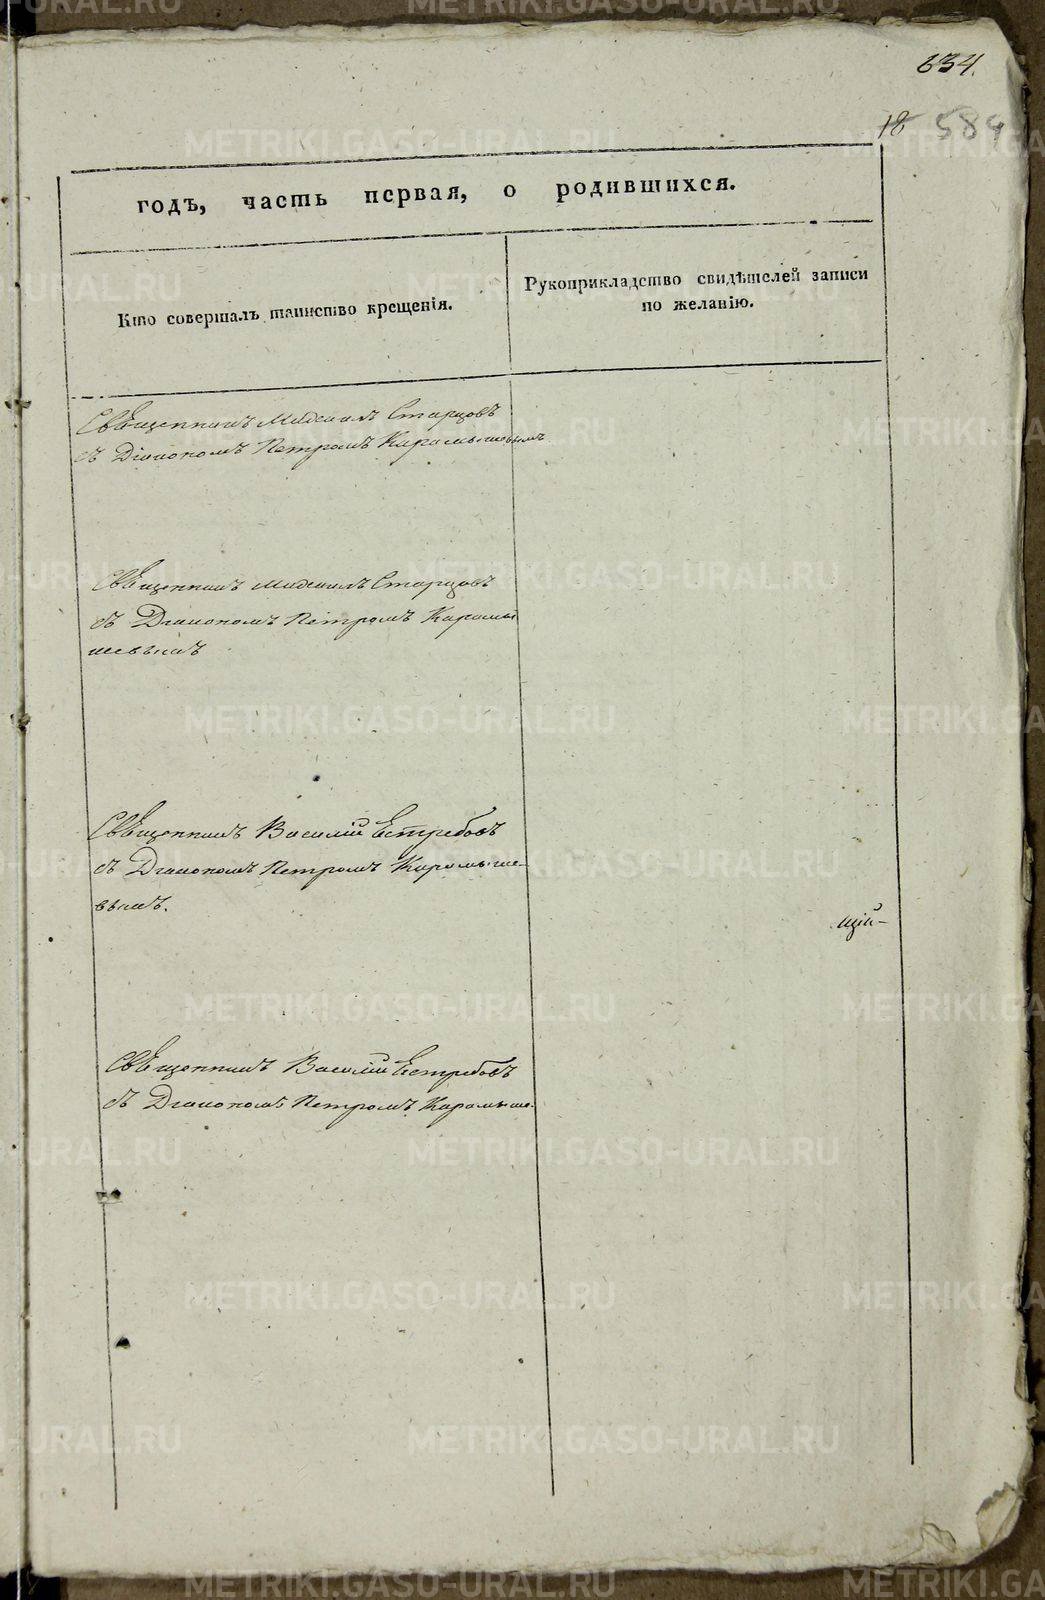 634.
18 584
годъ, часть первая, о родившихся.
Кто совершалъ таинство крещенія.
Рукоприкладство свидѣтелей записи
по желанію.
Священникъ Михаилъ Старцовъ
съ Діакономъ Петромъ Карамышевымъ
Священникъ Михаилъ Старцовъ
съ Диакономъ Петромъ Карамы
шевымъ
Священникъ Василій Естребовъ
съ Диакономъ Петромъ Карамыше-
вымъ.
щій-
Священникъ Василій Естребовъ
съ Диакономъ Петромъ Карамыше-
METRIKI.GASO-URAL.RU